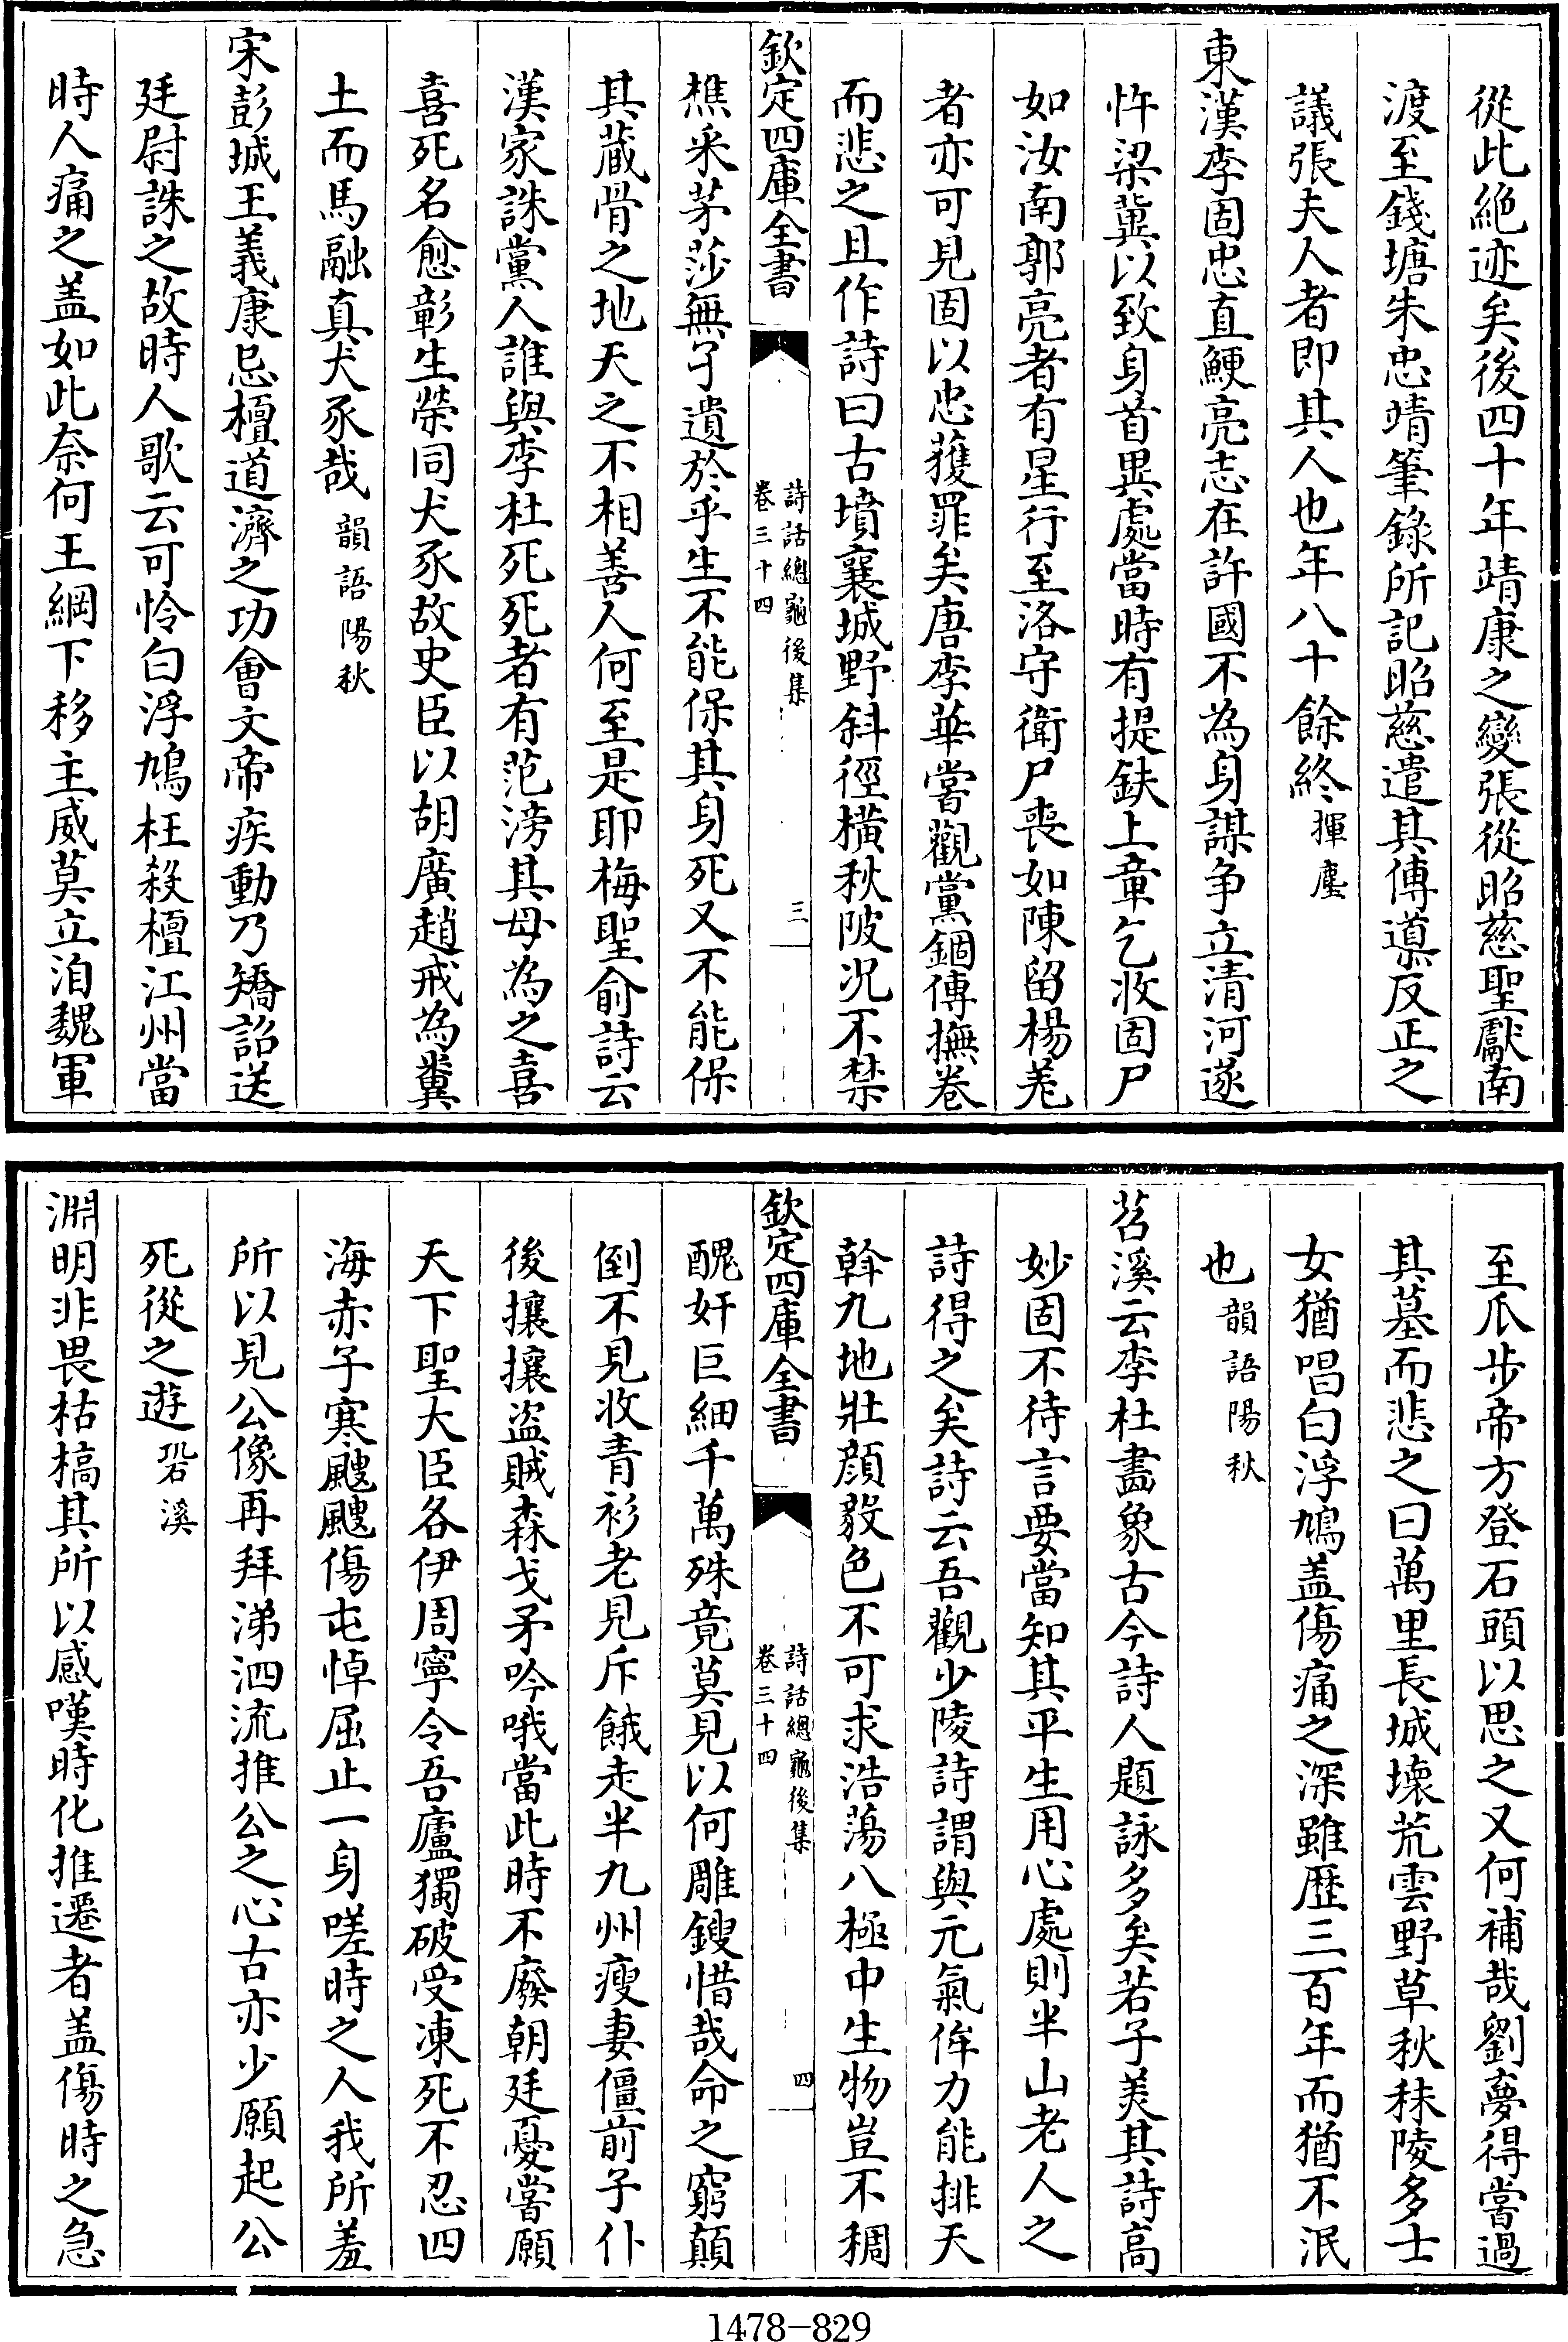 從此絶迹矣後四十年靖康之變張從昭慈聖獻南
渡至錢塘朱忠靖筆錄所記昭慈遣其傳導反正之
議張夫人者即其人也年八十餘終揮麈
東漢李固忠直鯁亮志在許國不為身謀争立清河遂
忤梁冀以致身首異處當時有提鈇上章乞收固尸
如汝南郭亮者有星行至洛守衛尸喪如陳留楊羌
者亦可見固以忠獲罪矣唐李華嘗觀黨錮傳撫卷
而悲之且作詩曰古墳襄城野斜徑横秋陂况不禁
欽定四庫全書
詩話總龜後集
卷三十四
三
樵采茅莎無孑遺於乎生不能保其身死又不能保
其蔵骨之地天之不相善人何至是耶梅聖俞詩云
漢家誅黨人誰與李杜死死者有范滂其母為之喜
喜死名愈彰生榮同犬豕故史臣以胡廣趙戒為糞
土而馬融真犬豕哉韻語陽秋
宋彭城王義康忌檀道濟之功會文帝疾動乃矯詔送
廷尉誅之故時人歌云可怜白浮鳩枉殺檀江州當
時人痛之盖如此奈何王綱下移主威莫立洎魏軍
至瓜步帝方登石頭以思之又何補哉劉夢得嘗過
其墓而悲之曰萬里長城壊荒雲野草秋秣陵多士
女猶唱白浮鳩盖傷痛之深雖歴三百年而猶不泯
也韻語陽秋
苕溪云李杜畫象古今詩人題詠多矣若子美其詩高
妙固不待言要當知其平生用心處則半山老人之
詩得之矣詩云吾觀少陵詩謂與元氣侔力能排天
斡九地壯顔毅色不可求浩蕩八極中生物豈不稠
欽定四庫全書
詩話總龜後集
卷三十四
四
醜奸巨細千萬殊竟莫見以何雕鎪惜哉命之窮顛
倒不見收青衫老見斥餓走半九州瘦妻僵前子仆
後攘攘盗賊森戈矛吟哦當此時不廢朝廷憂嘗願
天下聖大臣各伊周寧令吾廬獨破受凍死不忍四
海赤子寒颼颼傷屯悼屈止一身嗟時之人我所羞
所以見公像再拜涕泗流推公之心古亦少願起公
死從之遊䂬溪
淵明非畏枯槁其所以感嘆時化推遷者盖傷時之急
1478-829